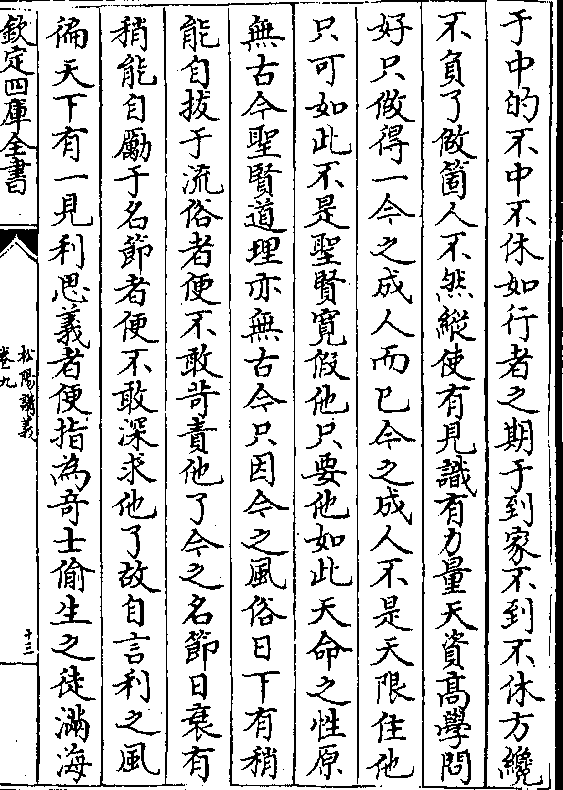 于中的不中不休如行者之期于到家不到不休方纔
不負了做箇人不然縱使有見識有力量天資髙學問
好只做得一今之成人而已今之成人不是天限住他
只可如此不是聖賢寛假他只要他如此天命之性原
無古今聖賢道理亦無古今只因今之風俗日下有稍
能自拔于流俗者便不敢苛責他了今之名節日衰有
稍能自勵于名節者便不敢深求他了故自言利之風
徧天下有一見利思義者便指為竒士偷生之徒滿海
欽定四庫全書
松陽講義
卷九
十三